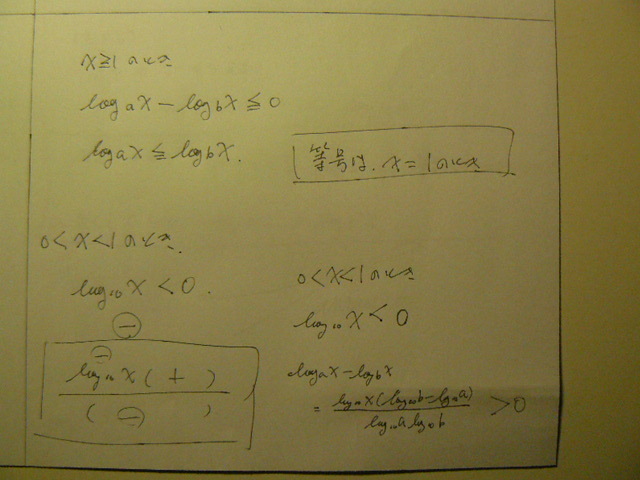 x≧1のとき
log a x − log b x ≦ 0
log a x ≦ log b x.
等号は. x=1のとき
0<x<1のとき.
log₁₀ x < 0.
⊖
⊖
log₁₀ x ( + )
( ⊖ )
0<x<1のとき
log₁₀ x < 0
log a x − log b x
= log₁₀ x (log₁₀ b − log₁₀ a) / log₁₀ a log₁₀ b > 0